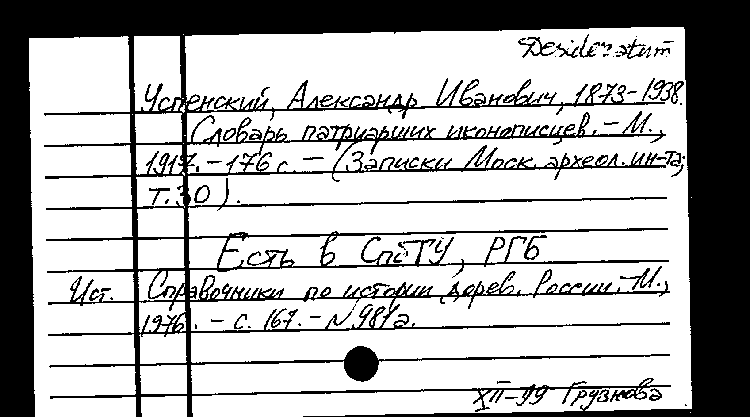 Desideratum
Успенский, Александр Иванович, 1873-1938.
Словарь патриарших иконописцев. - М.,
1917. - 176 с. - (Записки Моск. археол. ин-та;
Т. 30).
Есть в СПбГУ, РГБ
Ист. Справочники по истории дорев. России. - М.,
1976. - с. 167. - N 981а.
XII-99 Грузнова